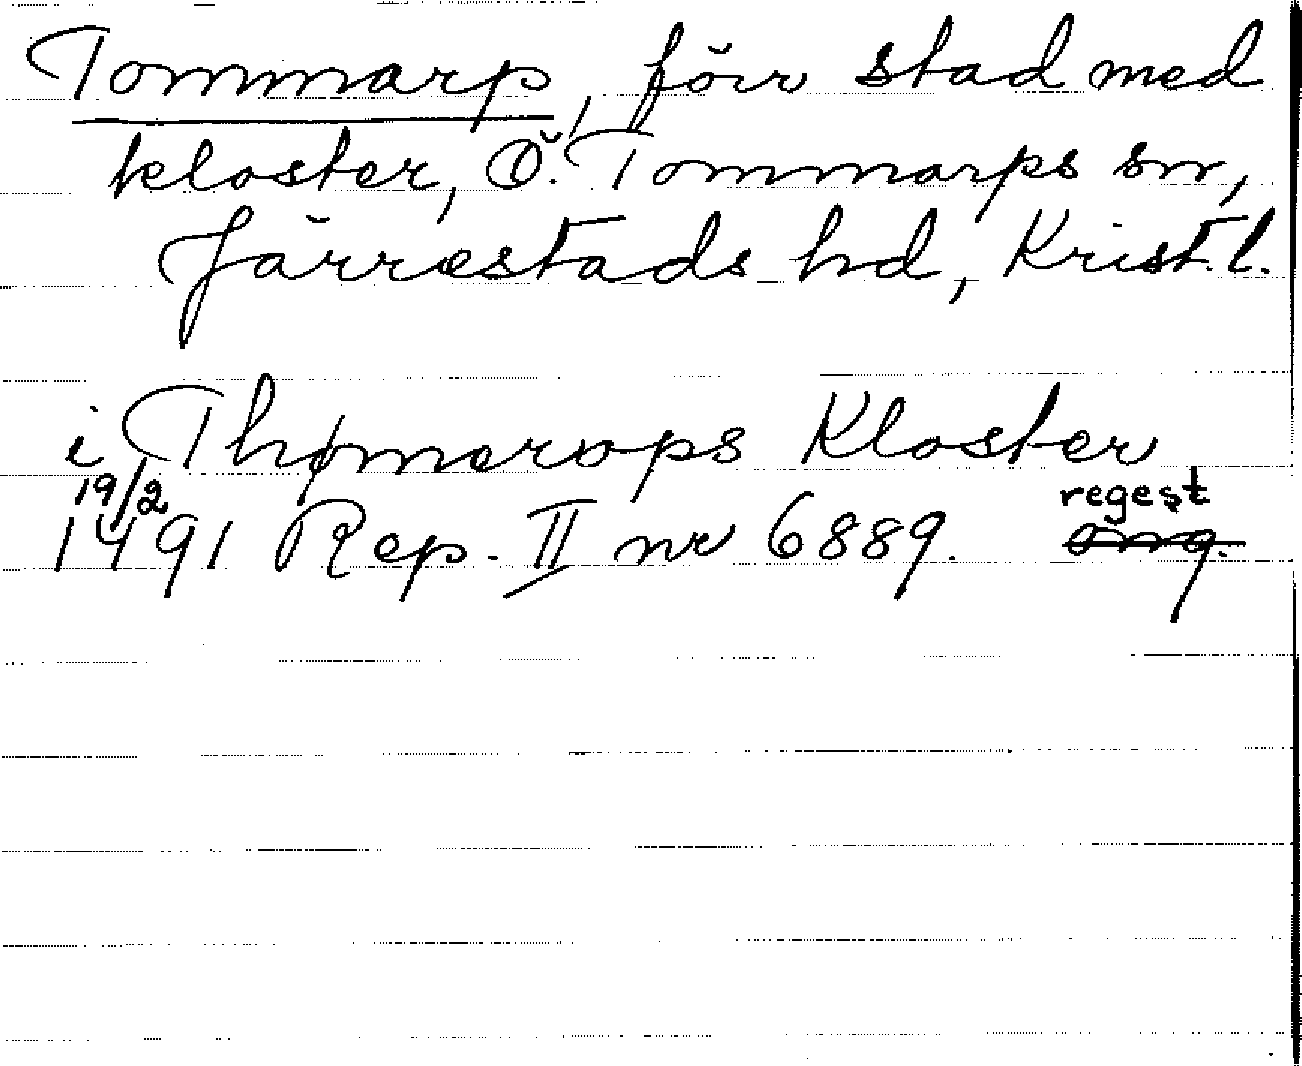 Tommarp, förr stad med
kloster, Ö. Tommarps sn,
Järrestads hd, Krist. l.
i Thømerops Kloster
19/2 regest
1491 Rep. II nr 6889. omg.